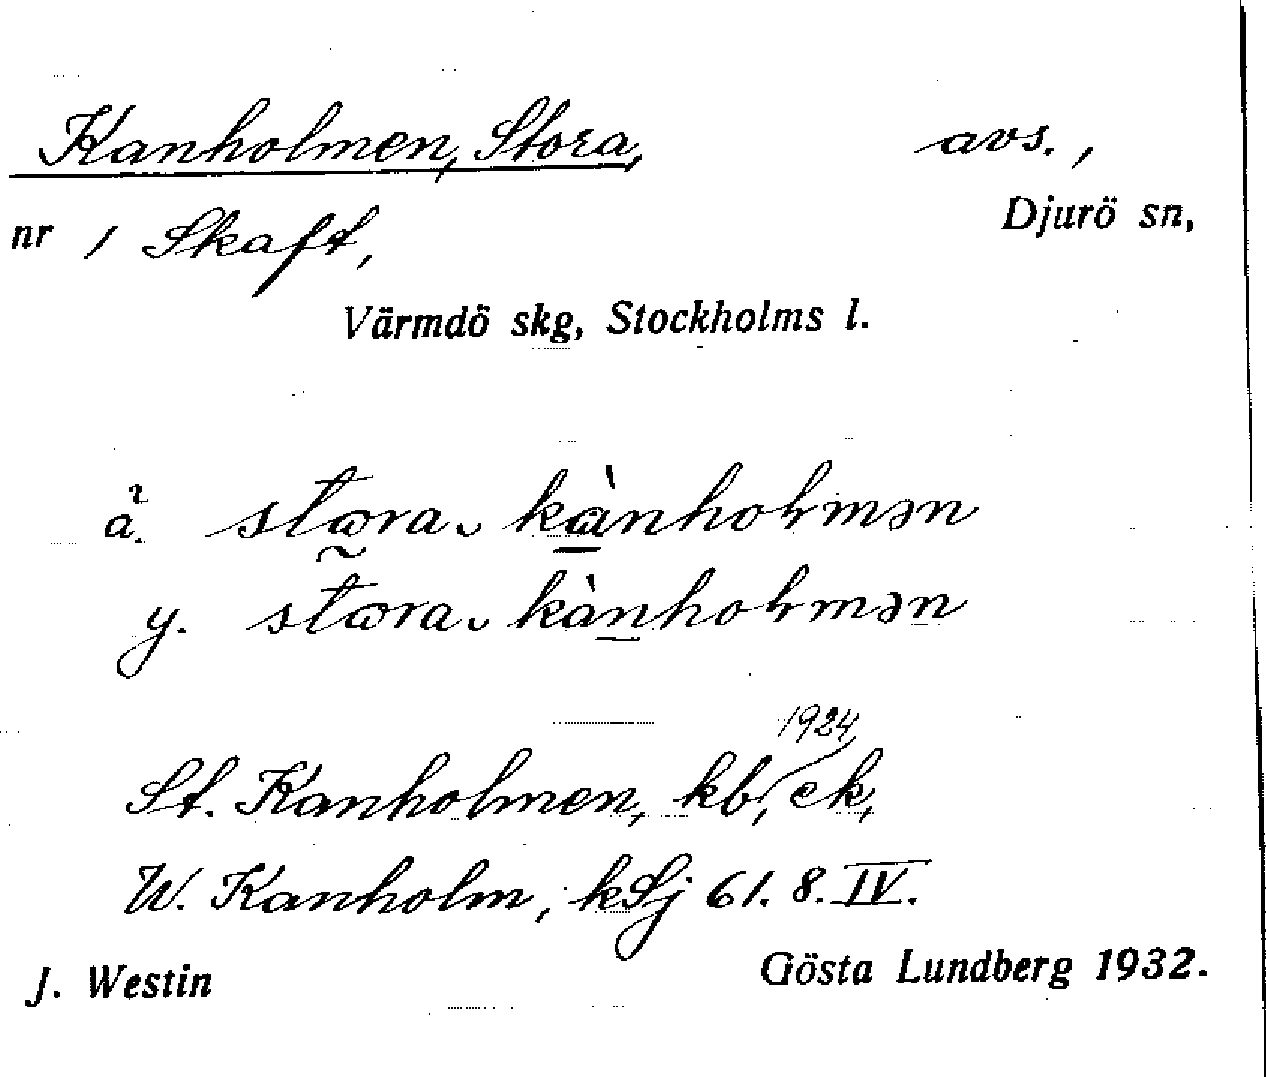 Kanholmen, Stora, avs.,
nr 1 Skaft, Djurö sn,
Värmdö skg, Stockholms l.
ä.
y.
1924
St. Kanholmen, kb, ek,
W. Kanholm, kSj 61. 8. IV.
J. Westin Gösta Lundberg 1932.